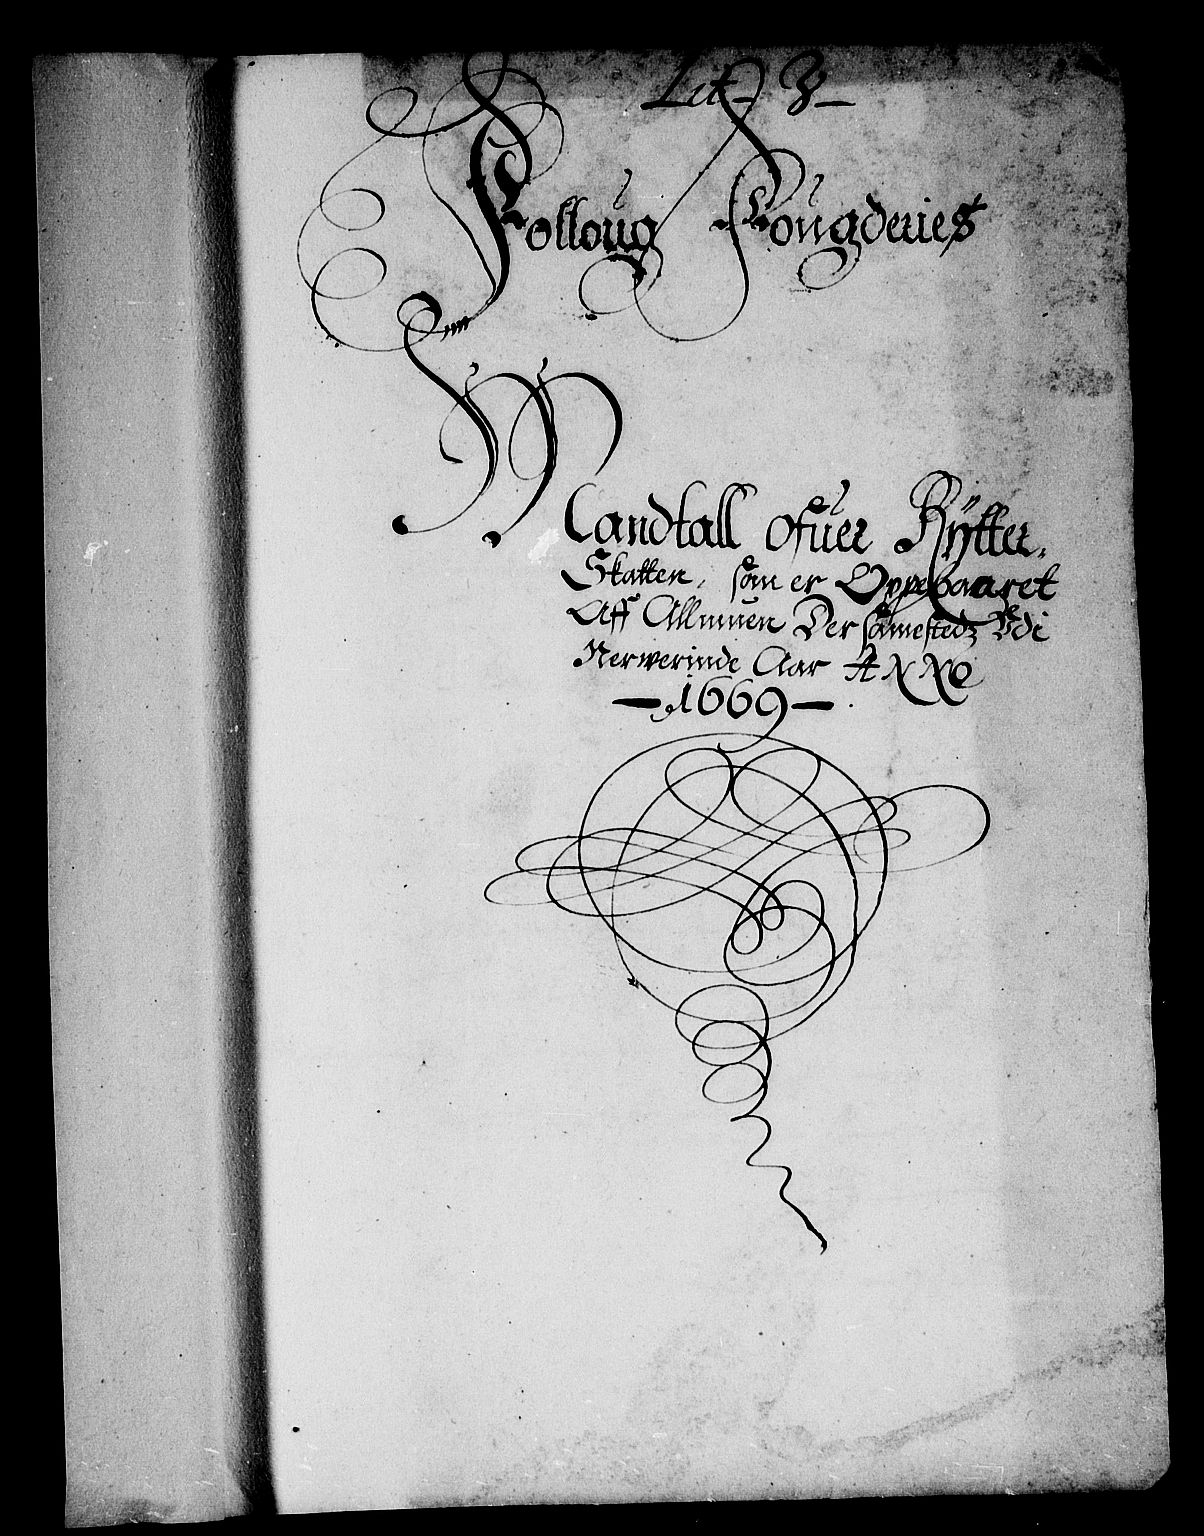 Lit. 3
Folloug Fougderies
Mandtall ofuer Rÿtter
Skatten, som er Oppebaaret
Aff Allmuen Der sammestedz Vdi
Nerwerinde Aar ANNO
1669